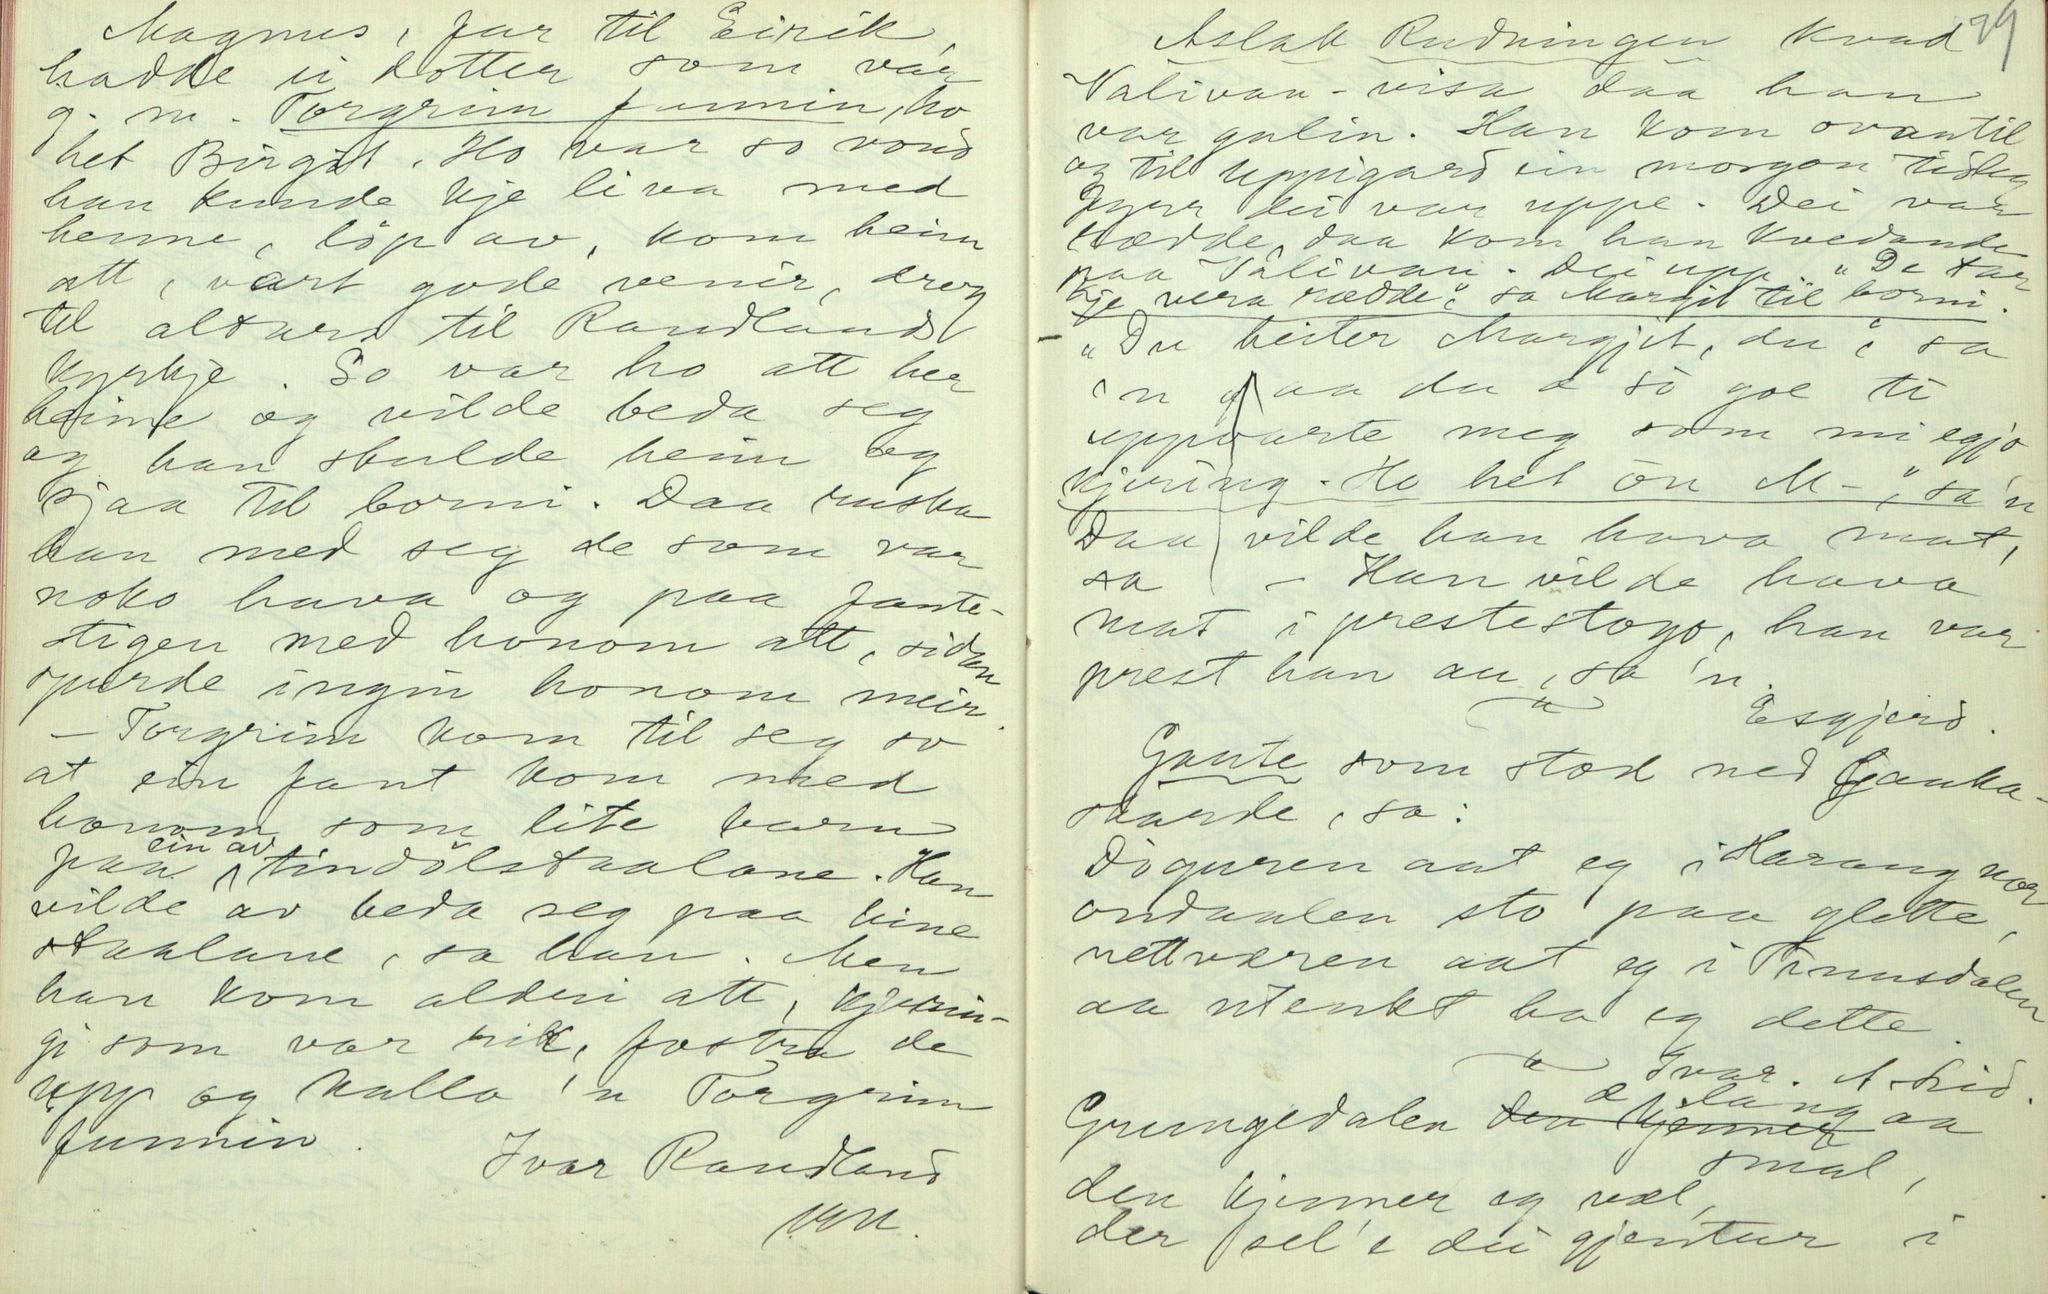 Magnus, far til Eirik,
hadde ei dotter som var
g. m. Torgrim funnin, ho
het Birgit. Ho var so vond
han kunde kje liva med
henne, löp av, kom heim
att, vart gode venir, drog
til altars til Randlands
kyrkje. So var ho att her
heime og vilde beda seg
og han skulde heim og
sjaa til borni. Daa ruska
han med seg de som var
noko hava og paa fante-
stigen med honom att, sidan
spurde ingin honom meir.
— Torgrim kom til seg so
at ein fant kom med
honom som lite barn
paa ein av tindölstaalane. Han
vilde av beda seg paa hine
staalane, sa han. Men
han kom alderi att, kjerrin-
gi som var rik, fostra de
upp og kalla 'n Torgrim
funnin.
Ivar Randland
79
Aslak Rudningen kvad
Valivan-visa daa han
var galin. Han kom ovantil
og til Uppigard ein morgon tidleg
fyrr dei var uppe. Dei var
rædde, daa kom han kvedande
paa Valivan. Dei upp. "De tar
kje vera rædde", sa Margit til borni.
"Du heiter Margjit, du", sa
'n aa du æ so goe ti
uppvarte meg som mi eigjo
kjering. Ho het ön M-", sa 'n
Daa vilde han hava mat,
sa — Han vilde hava
mat i prestestogo, han var
prest han au, sa 'n.
" Esgjerd.
Gaute som stod ned Gauka-
skarde, sa:
Döguren aat eg i Harang
ondaalen sto paa glette,
nettværen aat eg i Finnsdalen
aa utenkt ha eg dette.
" Ivar. A. Lid.
Grungedalen den kjenner æ lang aa
smal,
den kjenner eg væl,
der sel'e dei gjentur i